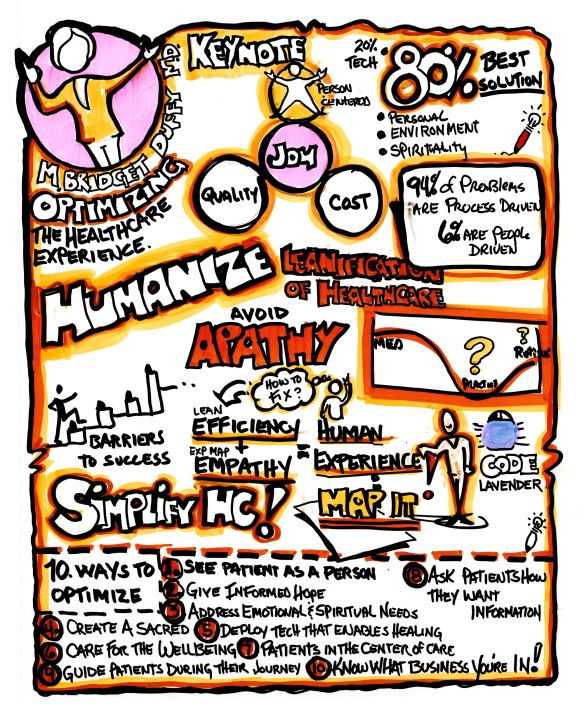 KEYNOTE
M. BRIDGET DUFFY M.D.
OPTIMIZING
THE HEALTHCARE
EXPERIENCE.
PERSON
CENTERED
JOY
QUALITY
COST
20%
TECH
80% BEST
SOLUTION
• PERSONAL
• ENVIRONMENT
• SPIRITIALITY
94% of PROBLEMS
ARE PROCESS DRIVEN
6% ARE PEOPLE
DRIVEN
HUMANIZE
LEANIFICATION
OF HEALTHCARE
AVOID
APATHY
MED
?
?
PRACTICE
BARRIERS
TO SUCCESS
HOW TO
FIX?
LEAN
EFFICIENCY
+
EXP MAP
EMPATHY
=
HUMAN
EXPERIENCE
• MAP IT •
CODE
LAVENDER
SIMPLIFY HC!
10. WAYS TO
OPTIMIZE
1. SEE PATIENT AS A PERSON
2 GIVE INFORMED HOPE
3 ADDRESS EMOTIONAL & SPIRITUAL NEEDS
4 CREATE A SACRED
5 DEPLOY TECH THAT ENABLES HEALING
6 CARE FOR THE WELLBEING
7 PATIENTS IN THE CENTER OF CARE
8 ASK PATIENTS HOW
THEY WANT
INFORMATION
9 GUIDE PATIENTS DURING THEIR JOURNEY
10 KNOW WHAT BUSINESS YOU'RE IN!